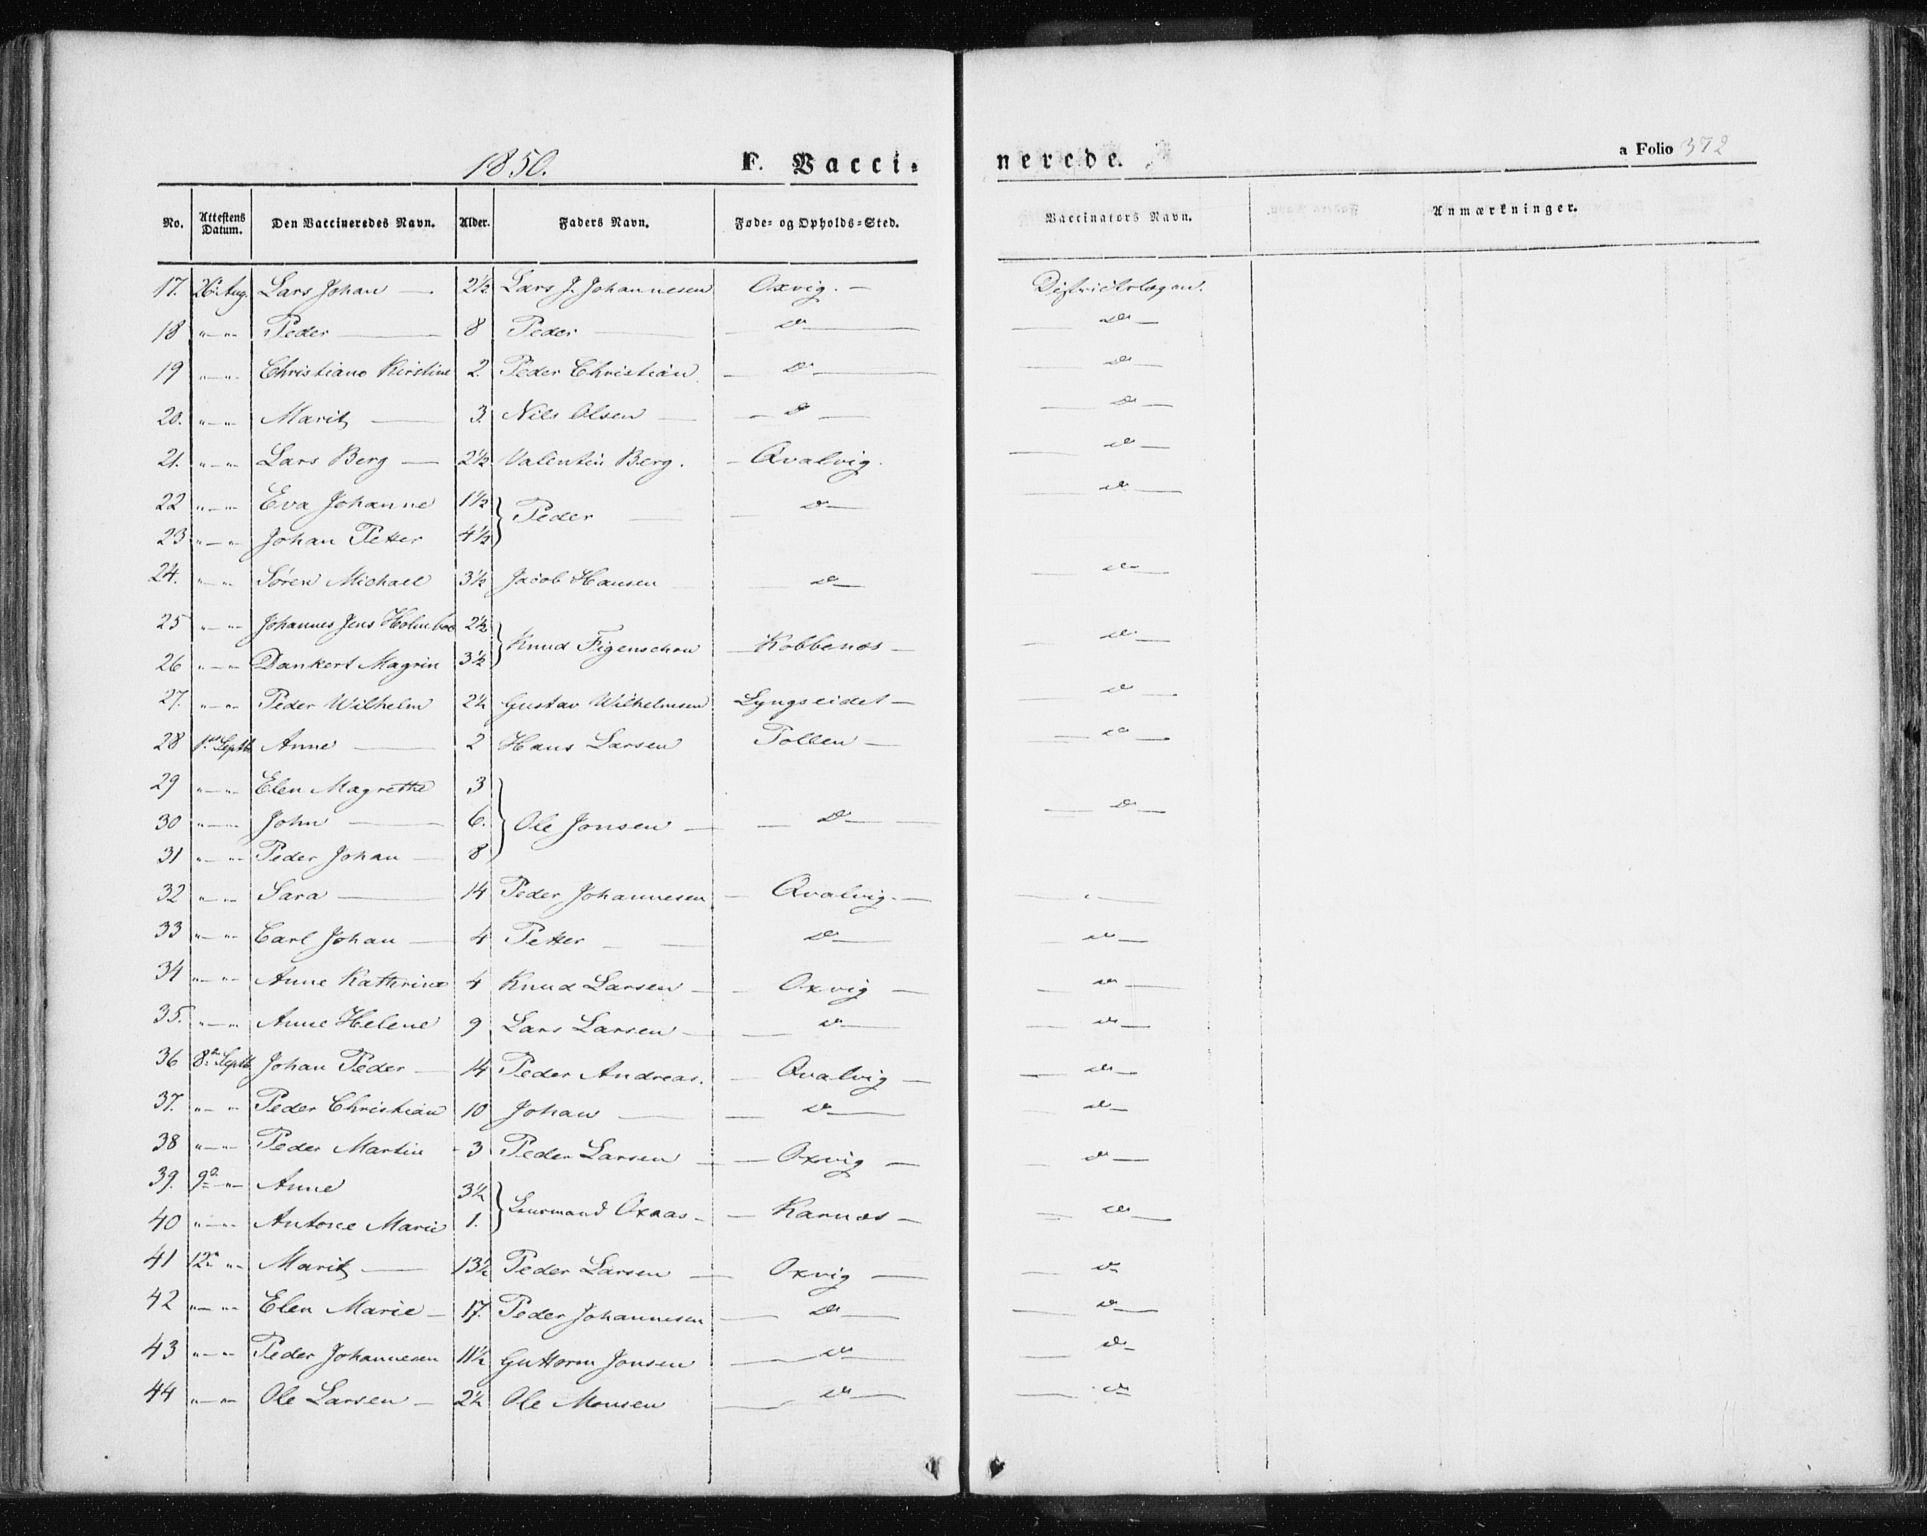 1850. F. Vacci- nerede. a Folio 372
No. Attestens Datum. Den Vaccineredes Navn. Alder. Faders Navn. Føde- og Opholds-Sted. Vaccinators Navn. Anmærkninger.
17. 26 Aug. Lars Johan — 2½ Lars J. Johannesen Oxvig. — Districtslægen.
18 „—„ Peder — 8 Peder — D — — D —
19 „—„ Christiane Kirstine 2. Peder Christian — D — — D —
20. „—„ Marit — 3. Nils Olsen — — D — — D —
21. „—„ Lars Berg — 2½ Valentin Berg. — Qvalvig. — D —
22 „—„ Eva Johanne 1½ } Peder — — D — — D —
23 „—„ Johan Petter 4½
24. „—„ Sören Michael 3½ Jacob Hansen — D — — D —
25 „—„ Johannes Jens Holmboe 2½ } Knud Figenschou — Kobbenæs — — D —
26 „—„ Dankert Magrin 3½
27. „—„ Peder Wilhelm 2½ Gustav Wilhelmsen Lyngseidet — — D —
28 1ste Septb. Anne — 2 Hans Larsen Pollen — — D —
29 „—„ Elen Magrethe 3 } Ole Jonsen — — D — — D —
30 „—„ John — 6.
31 „—„ Peder Johan — 8
32 „—„ Sara — 14 Peder Johannesen — Qvalvig. — — „ —
33 „—„ Carl Johan — 4 Petter — D — — D —
34 „—„ Anne Kathrine 4 Knud Larsen — — Oxvig — — D —
35. „—„ Anne Helene 9 Lars Larsen — — D — — D —
36 8de Septb. Johan Peder — 14 Peder Andreas. — Qvalvig — — D —
37. „—„ Peder Christian 10 Johan — — D — — D —
38 „—„ Peder Martin 3 Peder Larsen — — Oxvig — — D —
39. 9de „ Anne 3½ } Oxaas — — Karnæs — — D —
40 „—„ Antone Marie 1.
41 12te „ Marit — 13½ Peder Larsen — Oxvig — — D
42 „—„ Elen Marie — 17. Peder Johannesen — D — — D —
43 „—„ Peder Johannesen 11½ Guttorm Jonsen — D — — D
44 „—„ Ole Larsen — 2½ Ole Monsen — D — — D